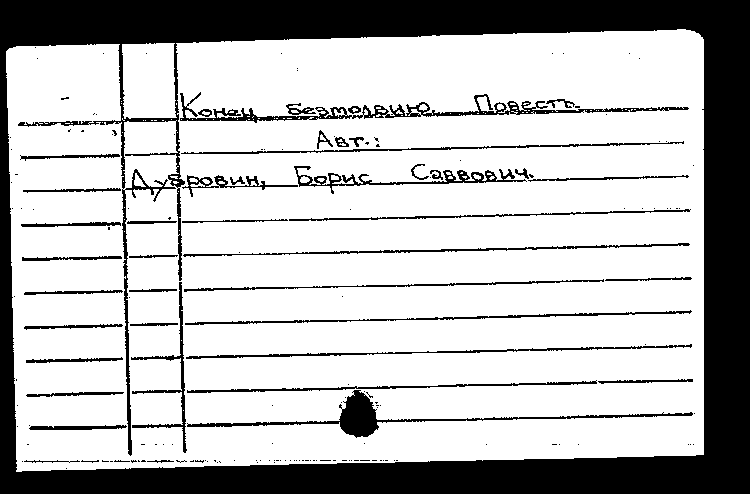 Конец безмолвию. Повесть.
Авт.:
Дубровин, Борис Саввович.